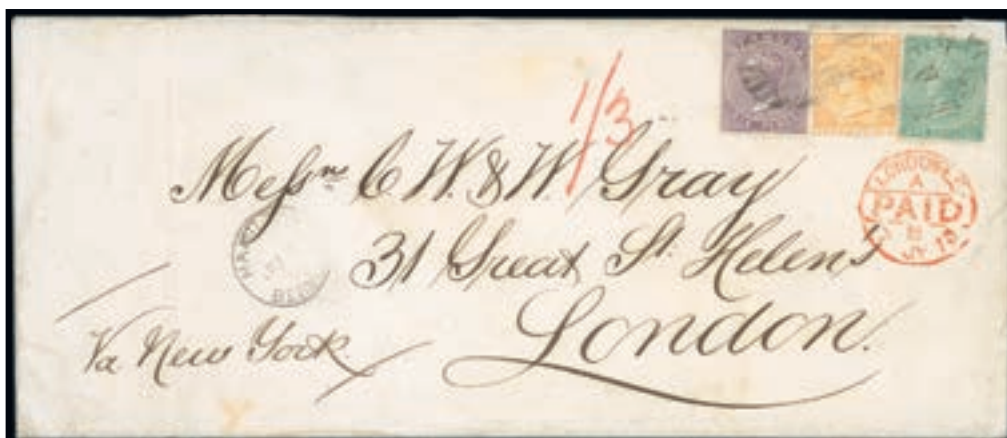 1/3
Messrs C. W. & W. Gray
31 Great St. Helens
London.
Via New York
LONDON
A
PAID